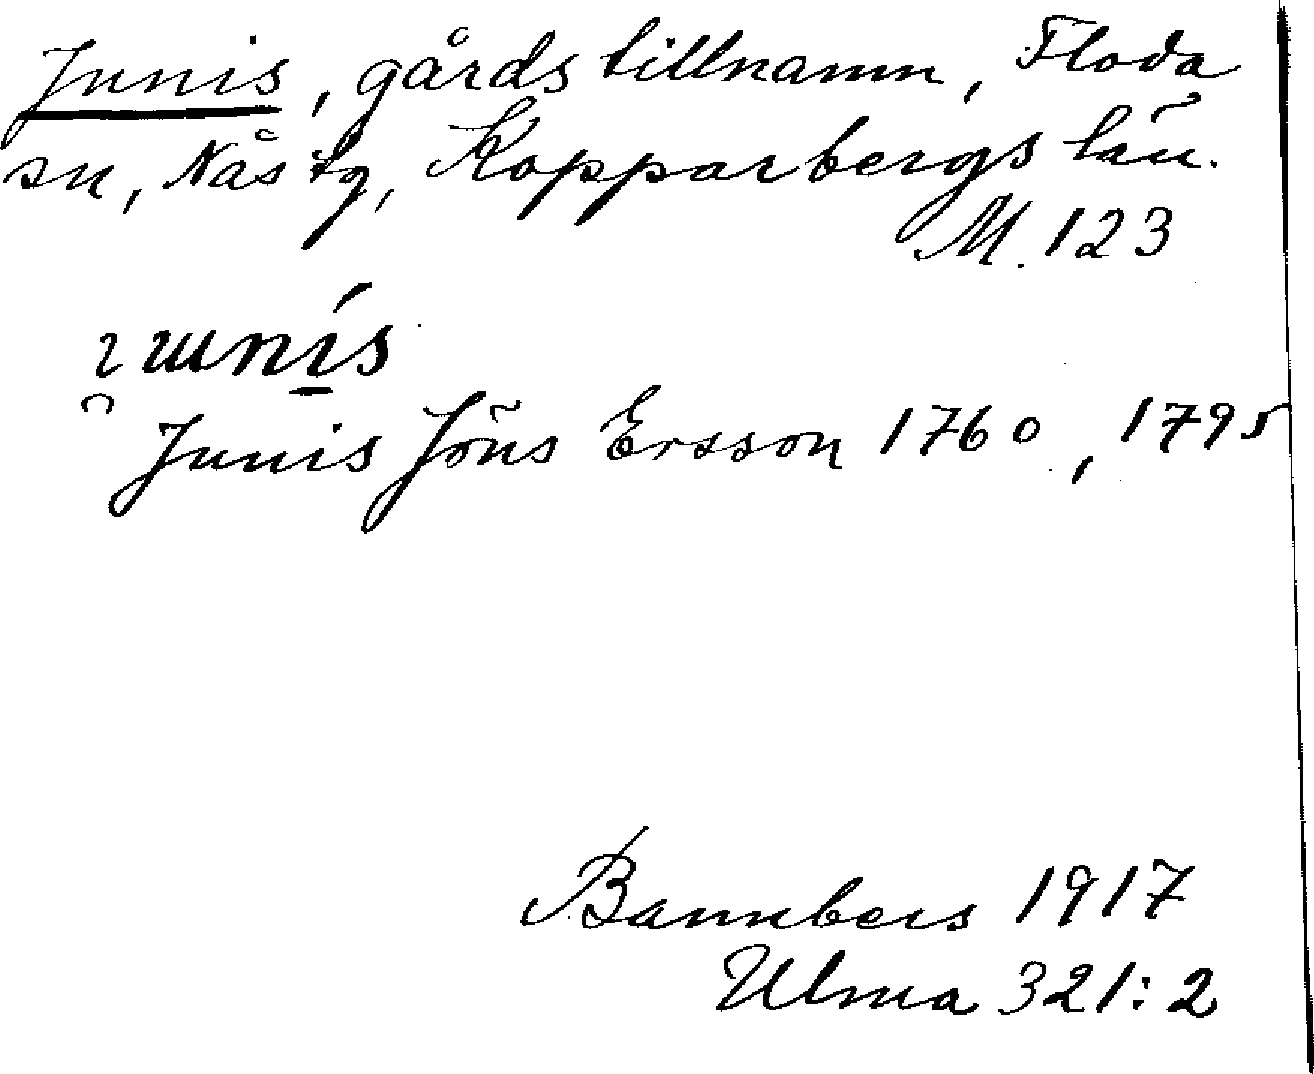 Junis, gårdstillnamn, Floda
sn, Nås tg, Kopparbergs län.
M. 123
Junis Jöns Ersson 1760, 1795
Bannbers 1917
Ulma 321:2